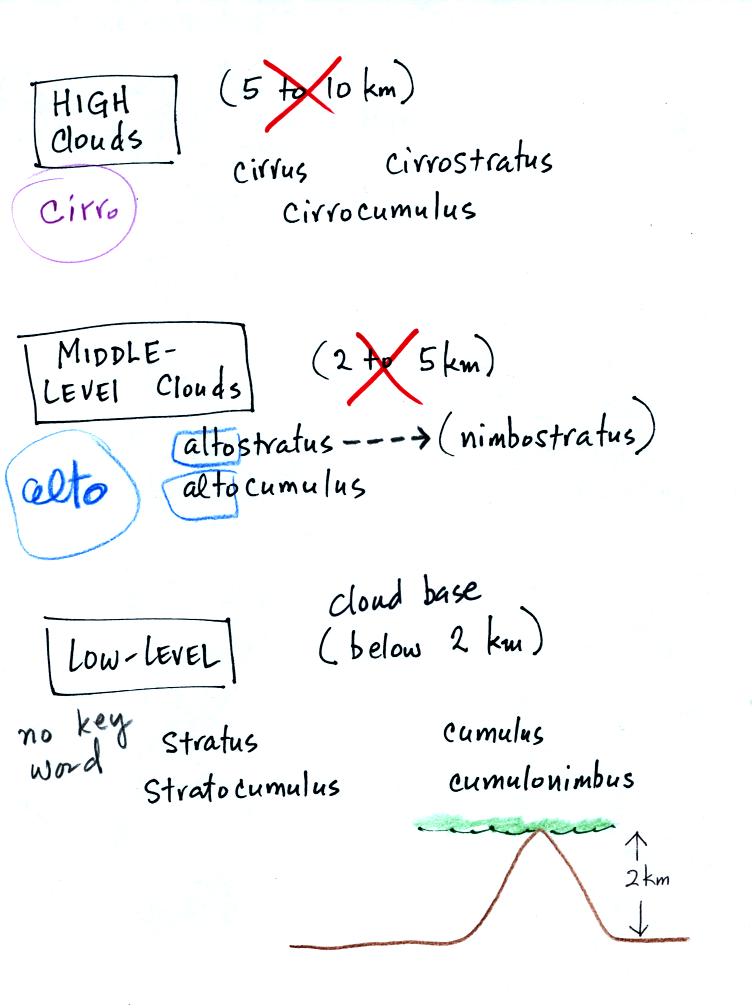 HIGH
Clouds
(5 to 10 km)
cirrus
cirrostratus
cirrocumulus
cirro
MIDDLE-
LEVEL Clouds
(2 to 5 km)
altostratus ----> (nimbostratus)
altocumulus
alto
LOW-LEVEL
cloud base
(below 2 km)
no key
word
Stratus
Stratocumulus
cumulus
cumulonimbus
2 km